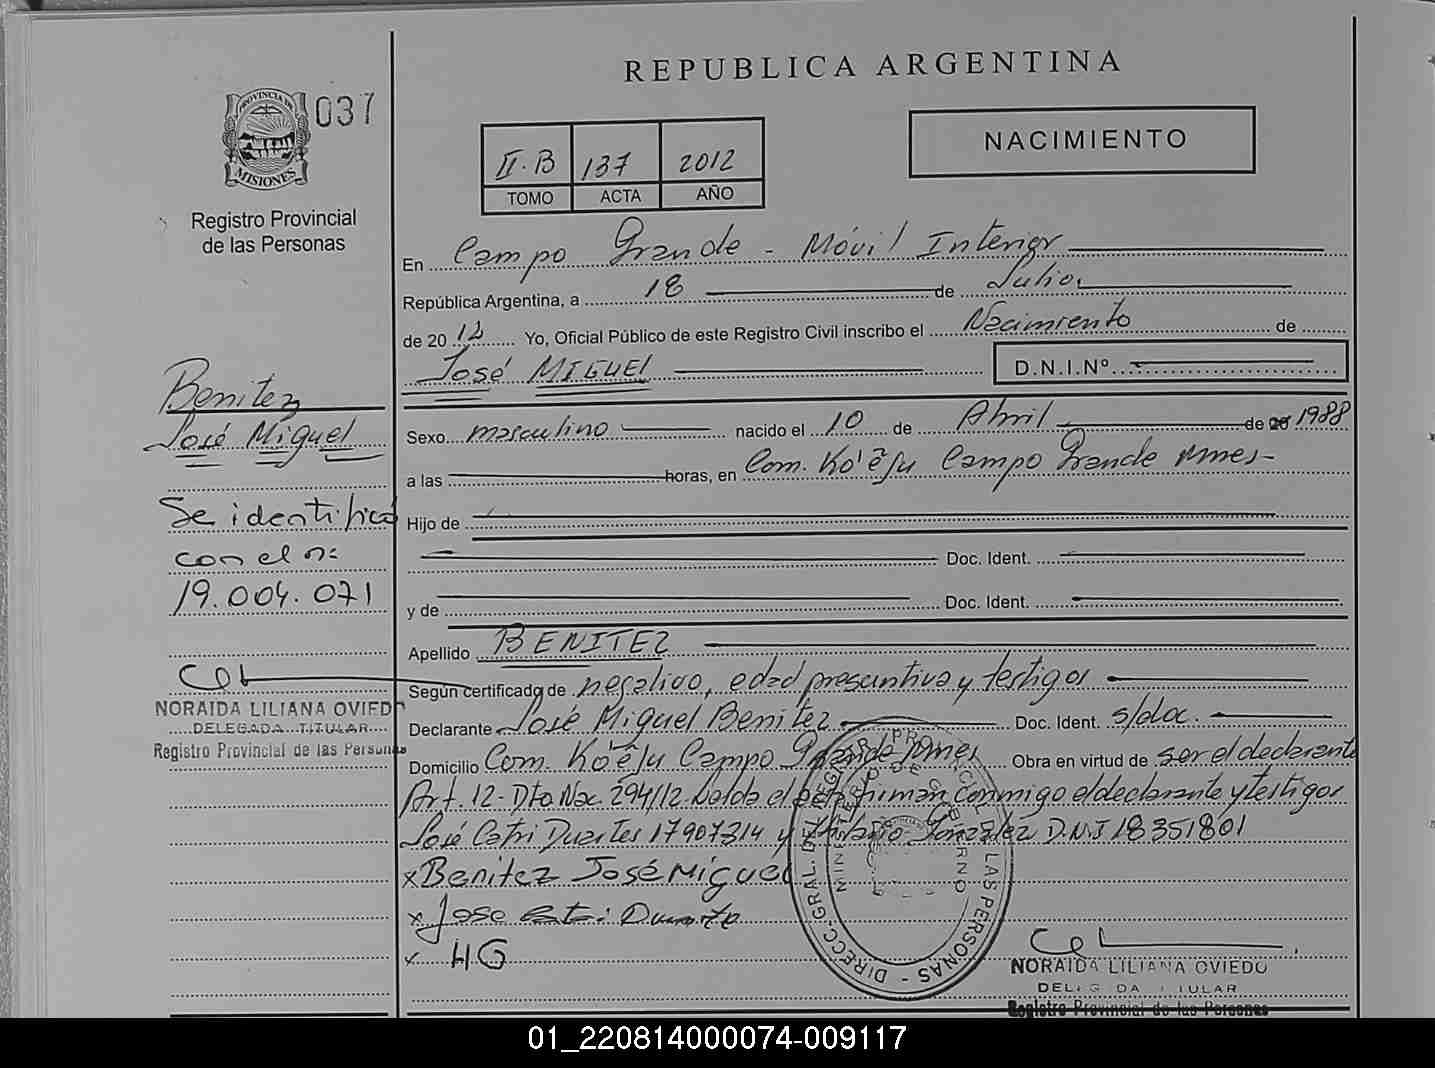 REPUBLICA ARGENTINA
PROVINCIA DE
MISIONES
037
Registro Provincial
de las Personas
II.B 137 2012
TOMO ACTA AÑO
NACIMIENTO
En Campo Grande - Móvil Interior
República Argentina, a 18 de Julio
de 2012 Yo, Oficial Público de este Registro Civil inscribo el Nacimiento de
José MIGUEL D.N.I.Nº
Sexo masculino nacido el 10 de Abril de 20 1988
a las horas, en Com. Ko'ẽju Campo Grande Mnes-
Hijo de
Doc. Ident.
y de Doc. Ident.
Apellido BENITEZ
Según certificado de negativo, edad presuntiva y testigos
Declarante José Miguel Benitez Doc. Ident. s/doc.
Domicilio Com. Ko'ẽju Campo Grande Mnes Obra en virtud de ser el declarante
Art. 12 - Dto Nac. 294/12 Leida el acta firman conmigo el declarante y testigos
José Catri Duartes 17907314 y González D.N.I 18351801
x Benitez José Miguel
x Jose Duarte
x HG
Benitez
José Miguel
Se identificó
con el nº
19.004.071
NORAIDA LILIANA OVIEDO
DELEGADA TITULAR
Registro Provincial de las Personas
DIRECC. GRAL. DEL REG. PROVINCIAL DE LAS PERSONAS
MINISTERIO DE GOBIERNO
NORAIDA LILIANA OVIEDO
DELEGADA TITULAR
Registro Provincial de las Personas
01_220814000074-009117